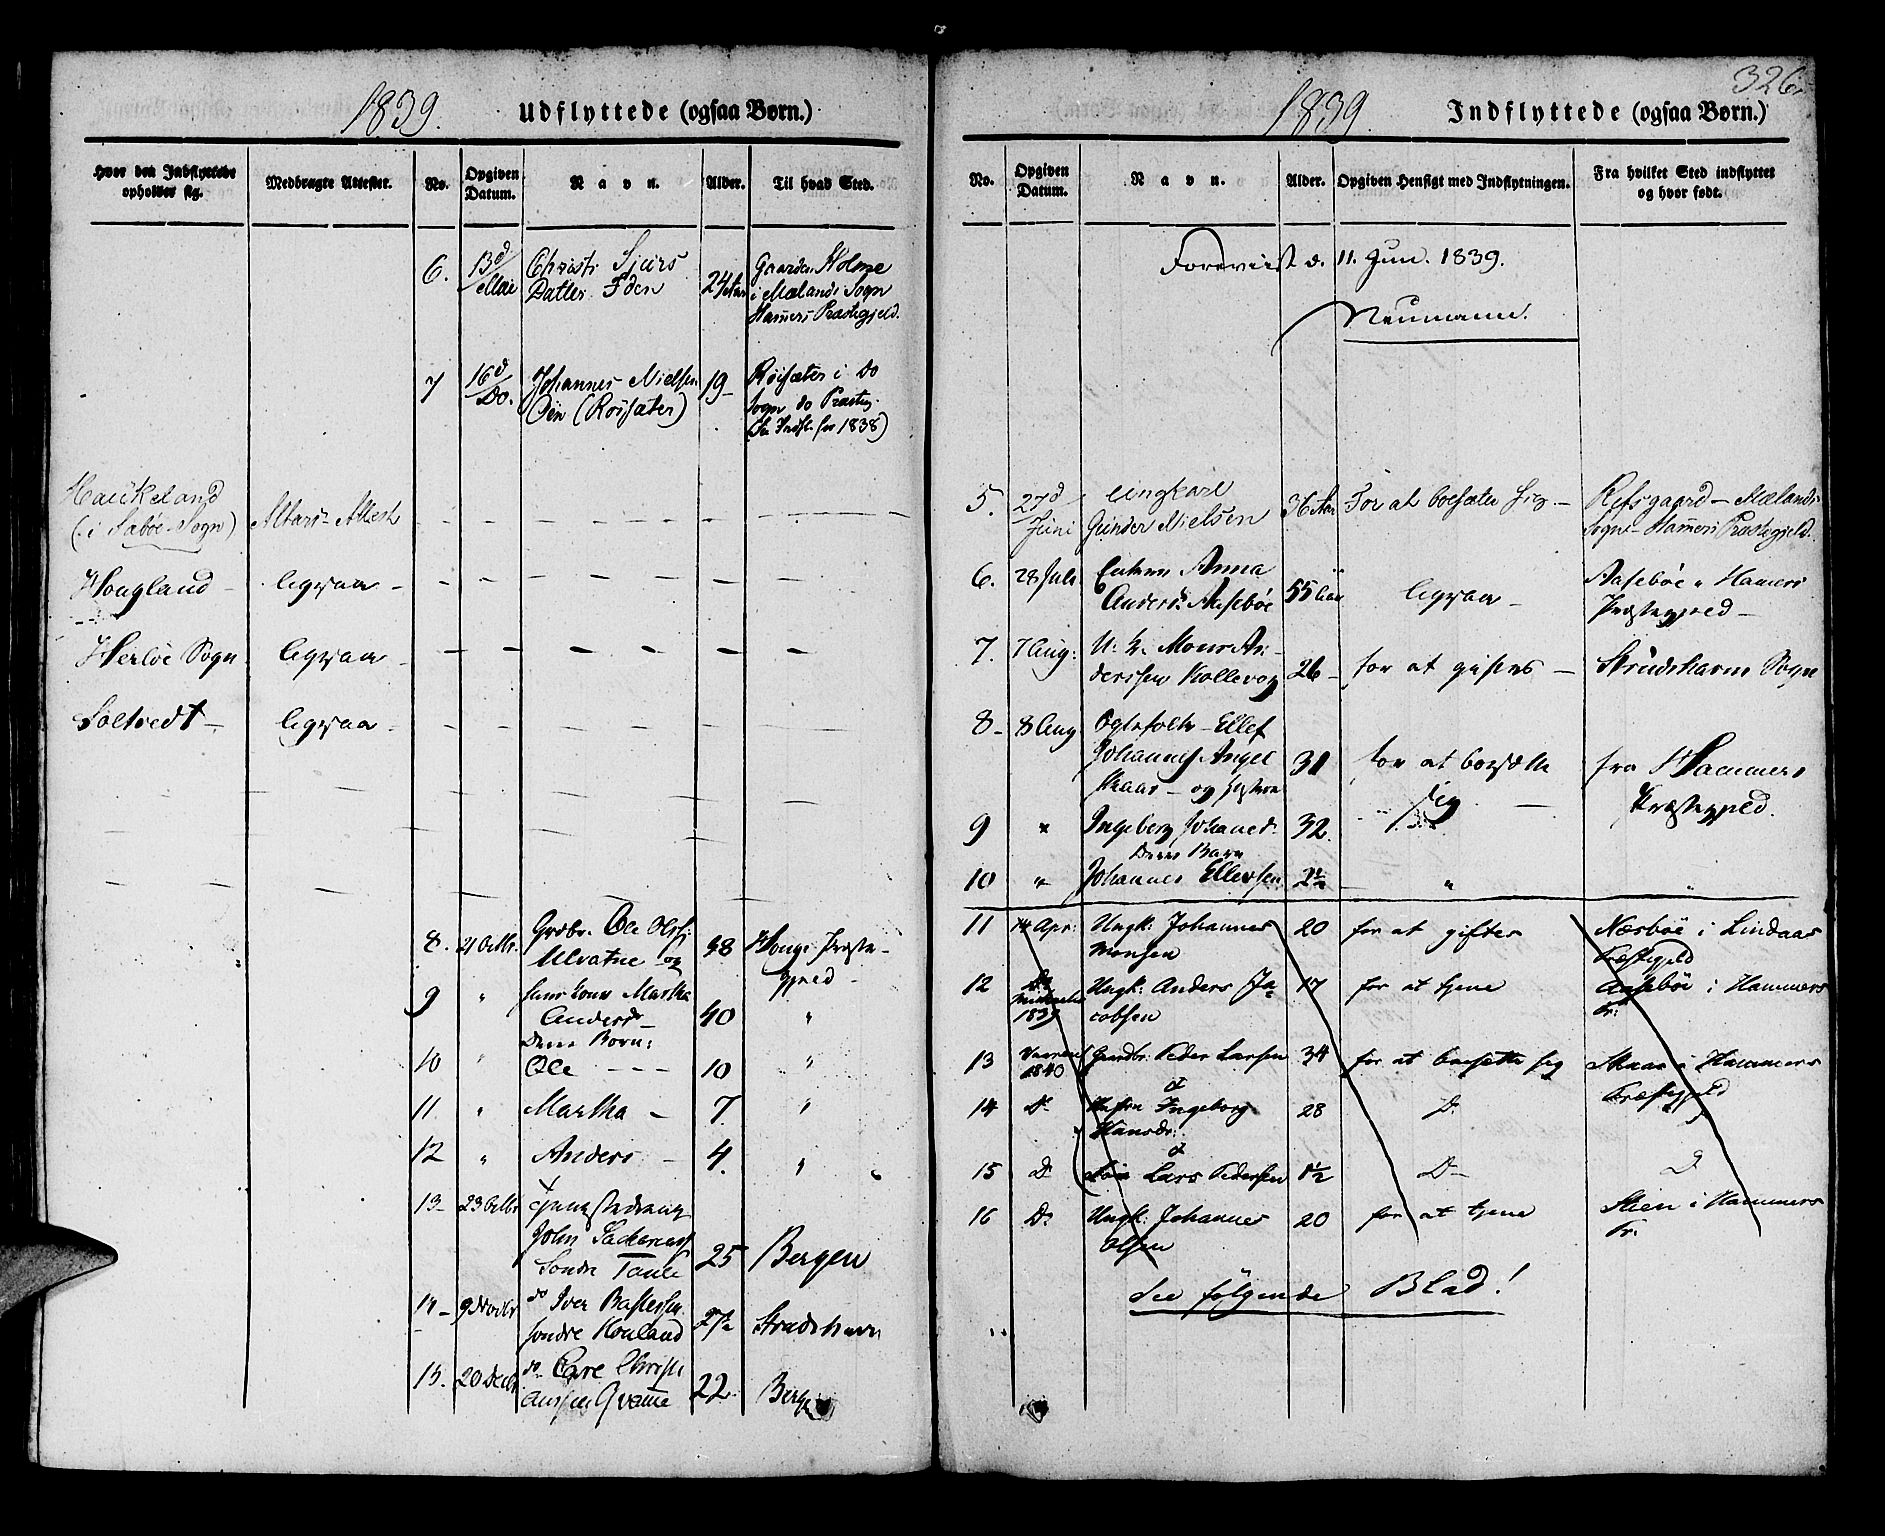 1839.
Udflyttede (ogsaa Børn.)
Hvor den Indflyttede opholder sig.
Medbragte Attester.
No.
Opgiven Datum.
Navn.
Alder.
Til hvad Sted.
6. 13d/Mai Christi Sjurs Datter 24 Aar Gaarden Holme
i Mælands Sogn
Hamers Præstegjeld.
7 16d/Do. Johannes Nielsen 19- Røisæter i Do
Øen (Røisæter) Sogn do Præsteg.
(Se Indfl. for 1838)
Haukeland
(i Sæbøe Sogn) Altars-Attest
Hougland - ligesaa -
Herløe Sogn ligesaa -
Soltvedt - ligesaa -
8. 21 Octbr. Grdbr. Ole Olss: 48 Hougs Præste-
Ulvatne og gjeld -
9 " hans kone Martha
Anders - 40 "
Deres Børn:
10 " Ole - - - 10 "
11. " Martha - 7. "
12 " Anders - 4. "
13- 23 Octbr
John 25 Bergen
Søndre
14- 9 Novbr do Iver
søndre 27- Strudshavn
15. 20 Decbr do
22.
1839
Indflyttede (ogsaa Børn.)
326.
No.
Opgiven Datum.
Navn.
Alder.
Opgiven Hensigt med Indflytningen.
Fra hvilket Sted indflyttet og hvor født.
Foreviist d. 11. Jun. 1839.
Neumann.
5. 27d/Juni Ungkarl 36 Aar For at bosætte sig - Refsgaard - Mælands
Gunder Nielsen Sogn - Hamers Præstegjeld.
6. 28 Juli Enken Anna 55 Aar ligesaa - Aasebøe - Hamers
Andersd. Aasebøe Præstegjeld -
7. 7 Aug: U: k. Mons An-
derssen Kollevog 26- for at giftes - Strudshavn Sogn
8- 8 Aug Egtefolk - Ellef
Johannes Angel 31 for at bosætte fra Hammers
skaar - og hustru sig - Præstegjeld.
9 " Ingeborg Johansd. 32.
Deres Barn
10 " Johannes Ellevsen 2½ " "
11 14 Apr: Ungk: Johannes 20 for at giftes Næsbøe i Lindaas
Monsen Præstegjeld
12 Do Michaeli 1839 Ungk: Anders Ja- 17 for at tjene Aasebøe i Hammers
cobsen Pr:
13 Vaaren 1840 Gaardbr: Peder Larsen 34 for at bosætte sig Skaar i Hammers
& Præstegjeld
14 Do Hustru Ingeborg 28 Do
Hansdr:
&
15 Do Søn Lars Pedersen 1½ Do Do
16 Do Ungk: Johannes 20 for at tjene Steen i Hammers
Olsen Pr:
See følgende Blad!